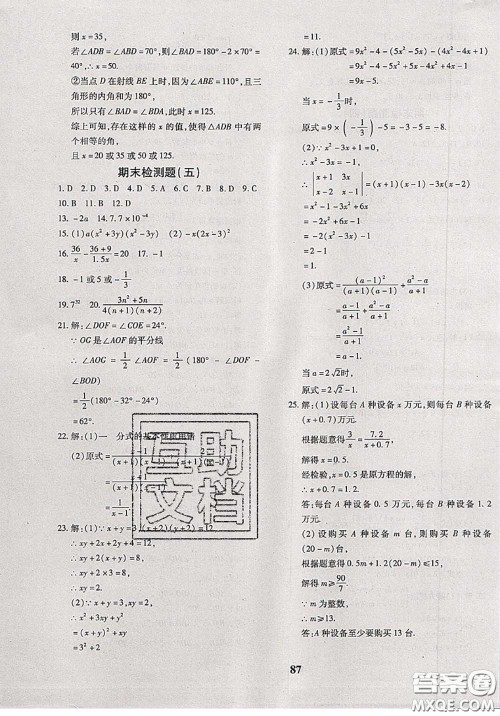 则 x = 35，
若∠ADB = ∠ABD = 70°，则∠BAD = 180° - 2 × 70° = 40°，∴ x = 50.
②当点 D 在射线 BE 上时，因为∠ABE = 110°，且三
角形的内角和为 180°，
所以只有∠BAD = ∠BDA，此时 x = 125.
综上可知，存在这样的 x 的值，使得△ADB 中有两
个相等的角，
且 x = 20 或 35 或 50 或 125.
期末检测题(五)
1. D 2. D 3. D 4. D 5. A 6. C 7. B 8. D 9. C
10. D 11. B 12. B
13. -2a 14. 7.7 × 10⁻⁴
15. (1)a(x² + 3y)(x² - 3y) (2) -x(2x - 3)²
16. 36/x - (36 + 9)/1.5x = 20 17. -1
18. -1 或 5 或 -1/3
19. 7³² 20. (3n² + 5n)/(4(n + 1)(n + 2))
21. 解：∠DOF = ∠COE = 24°.
∵ OG 是∠AOF 的平分线
∴ ∠AOG = 1/2 ∠AOF = 1/2 (180° - ∠DOF -
∠BOD)
= 1/2 (180° - 32° - 24°)
= 62°.
22. 解：(1)一 分式的基本性质用错
(2)原式 =
= 1/(x - 1).
23. 解：(1)∵ x + y = 3，(x + 2)(y + 2) = 12，
∴ xy + 2x + 2y + 4 = 12，
∴ xy + 2(x + y) = 8，
∴ xy + 2 × 3 = 8，
∴ xy = 2.
(2)∵ x + y = 3，xy = 2，
∴ x² + 3xy + y²
= (x + y)² + xy
= 3² + 2
= 11.
24. 解：(1)原式 = 9x² - 4 - (5x² - 5x) - (4x² - 4x + 1)
= 9x - 5.
当 x = -1/3 时，
原式 = 9 × (-1/3) - 5 = -3 - 5 = -8.
(2)∵ x² - 3x + 1 = 0，
∴ x² - 3x = -1，
∴ |x + 1 3x; x - 2 x - 1| = (x + 1)(x - 1) - 3x(x - 2)
= x² - 1 - 3x² + 6x
= -2(x² - 3x) - 1
= 1.
(3)原式 = (a - 1)²/((a + 1)(a - 1)) + (a² - a)/(a + 1)
= (a - 1)/(a + 1) + (a² - a)/(a + 1)
= (a² - 1)/(a + 1)
= a - 1.
当 a = 2√2时，
原式 = 2√2 - 1.
25. 解：(1)设每台 A 种设备 x 万元，则每台 B 种设备
(x + 0.7)万元.
根据题意得 3/x = 7.2/(x + 0.7)，
解得 x = 0.5.
经检验，x = 0.5 是原方程的解，
∴ x + 0.7 = 1.2.
答：每台 A 种设备 0. 5 万元，每台 B 种设备
1.2 万元.
(2)设购买 A 种设备 m 台，则购买 B 种设备
(20 - m)台.
根据题意得 0.5m + 1.2(20 - m) ≤ 15，
解得 m ≥ 90/7.
∵ m 为整数，
∴ m ≥ 13.
答：A 种设备至少要购买 13 台.
87
互助
文档
答案圈
MXQE.COM